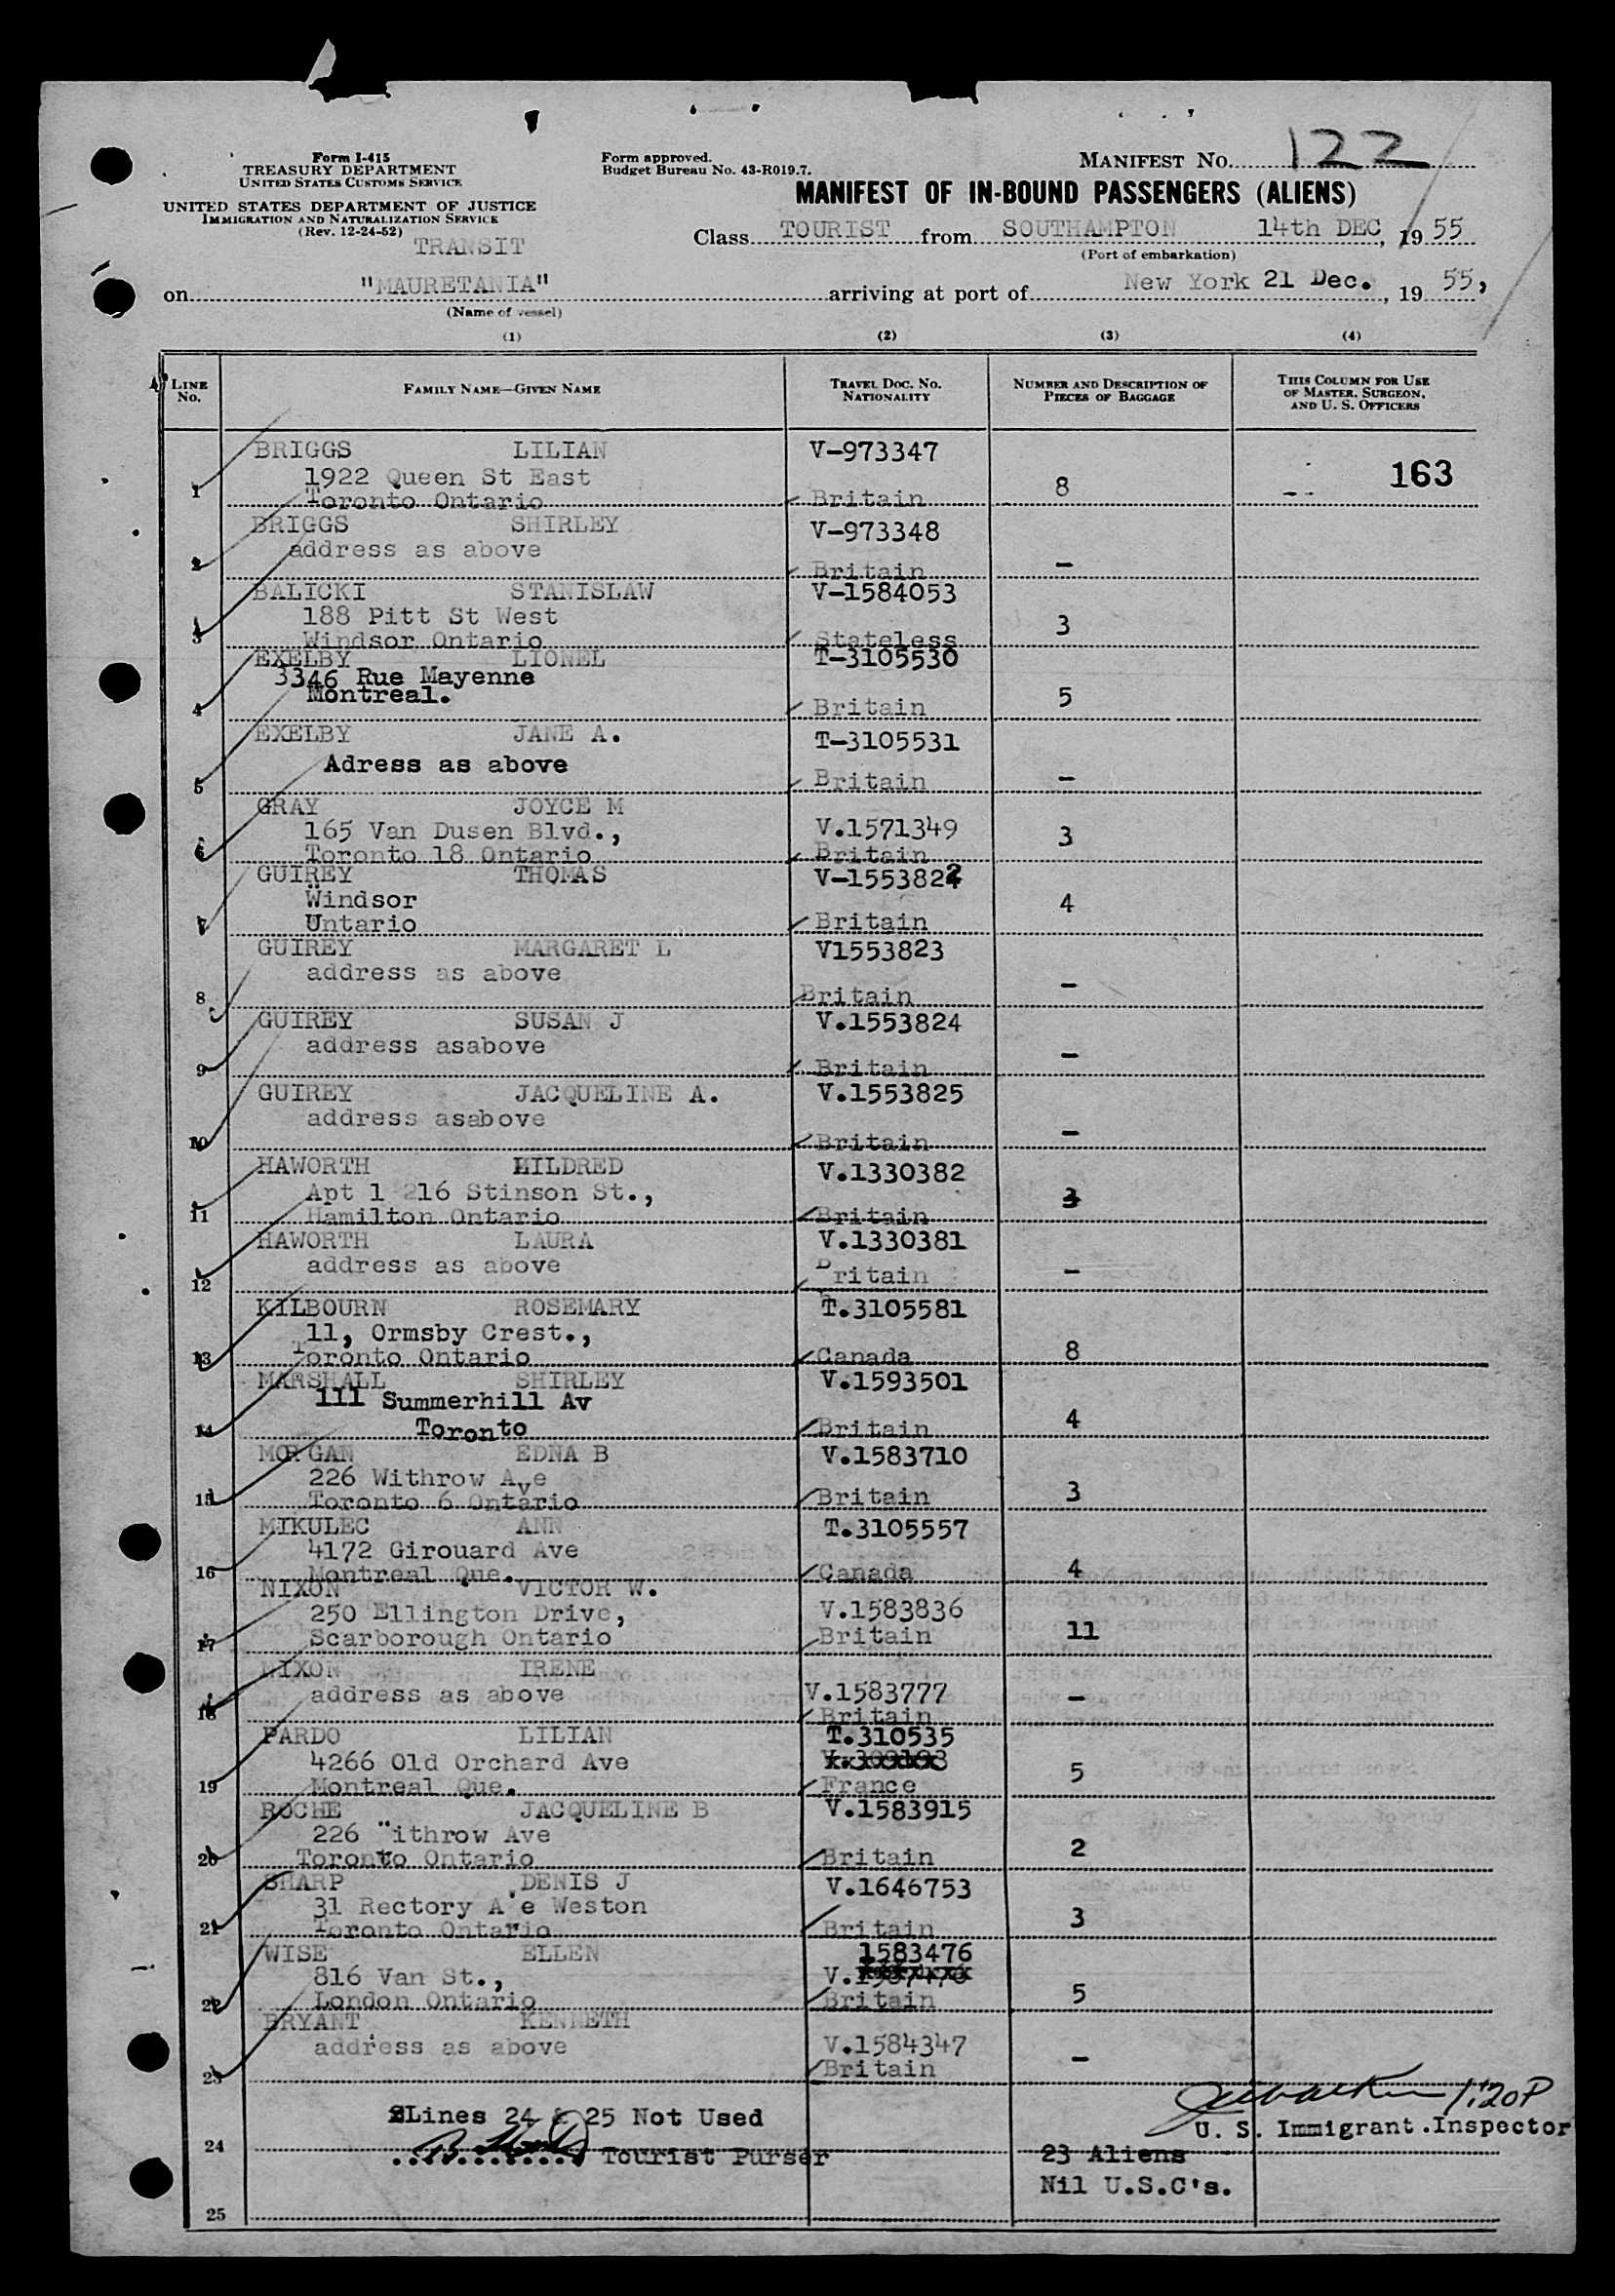 Form I-415
TREASURY DEPARTMENT
UNITED STATES CUSTOMS SERVICE
UNITED STATES DEPARTMENT OF JUSTICE
IMMIGRATION AND NATURALIZATION SERVICE
(Rev. 12-24-52)
TRANSIT
Form approved.
Budget Bureau No. 43-R019.7.
MANIFEST No. 122
MANIFEST OF IN-BOUND PASSENGERS (ALIENS)
Class TOURIST from SOUTHAMPTON 14th DEC, 1955
(Port of embarkation)
on "MAURETANIA" arriving at port of New York 21 Dec., 1955,
(Name of vessel)
(1) (2) (3) (4)
LINE No. FAMILY NAME—GIVEN NAME TRAVEL DOC. NO. NATIONALITY NUMBER AND DESCRIPTION OF PIECES OF BAGGAGE THIS COLUMN FOR USE OF MASTER, SURGEON, AND U. S. OFFICERS
BRIGGS LILIAN V-973347
1922 Queen St East 163
1 Toronto Ontario Britain 8
BRIGGS SHIRLEY V-973348
address as above
2 Britain -
BALICKI STANISLAW V-1584053
188 Pitt St West
3 Windsor Ontario Stateless 3
EXELBY LIONEL T-3105530
3346 Rue Mayenne
Montreal.
4 Britain 5
EXELBY JANE A. T-3105531
Adress as above
5 Britain -
GRAY JOYCE M
165 Van Dusen Blvd., V.1571349
6 Toronto 18 Ontario Britain 3
GUIREY THOMAS V-1553822
Windsor
7 Untario Britain 4
GUIREY MARGARET L V1553823
address as above
8 Britain -
GUIREY SUSAN J V.1553824
address asabove
9 Britain -
GUIREY JACQUELINE A. V.1553825
address asabove
10 Britain -
HAWORTH MILDRED V.1330382
Apt 1 216 Stinson St.,
11 Hamilton Ontario Britain 3
HAWORTH LAURA V.1330381
address as above
12 Britain -
KILBOURN ROSEMARY T.3105581
11, Ormsby Crest.,
13 Toronto Ontario Canada 8
MARSHALL SHIRLEY V.1593501
111 Summerhill Av
14 Toronto Britain 4
MORGAN EDNA B V.1583710
226 Withrow Ave
15 Toronto 6 Ontario Britain 3
MIKULEC ANN T.3105557
4172 Girouard Ave
16 Montreal Que. Canada 4
NIXON VICTOR W.
250 Ellington Drive, V.1583836
17 Scarborough Ontario Britain 11
NIXON IRENE
address as above V.1583777
18 Britain -
PARDO LILIAN T.310535
4266 Old Orchard Ave
19 Montreal Que. France 5
ROCHE JACQUELINE B V.1583915
226 "ithrow Ave
20 Toronto Ontario Britain 2
SHARP DENIS J V.1646753
31 Rectory A'e Weston
21 Toronto Ontario Britain 3
WISE ELLEN 1583476
816 Van St., V.
22 London Ontario Britain 5
BRYANT KENNETH
address as above V.1584347
23 Britain -
1:20P
Lines 24 & 25 Not Used U. S. Immigrant.Inspector
24 Tourist Purser 23 Aliens
Nil U.S.C's.
25